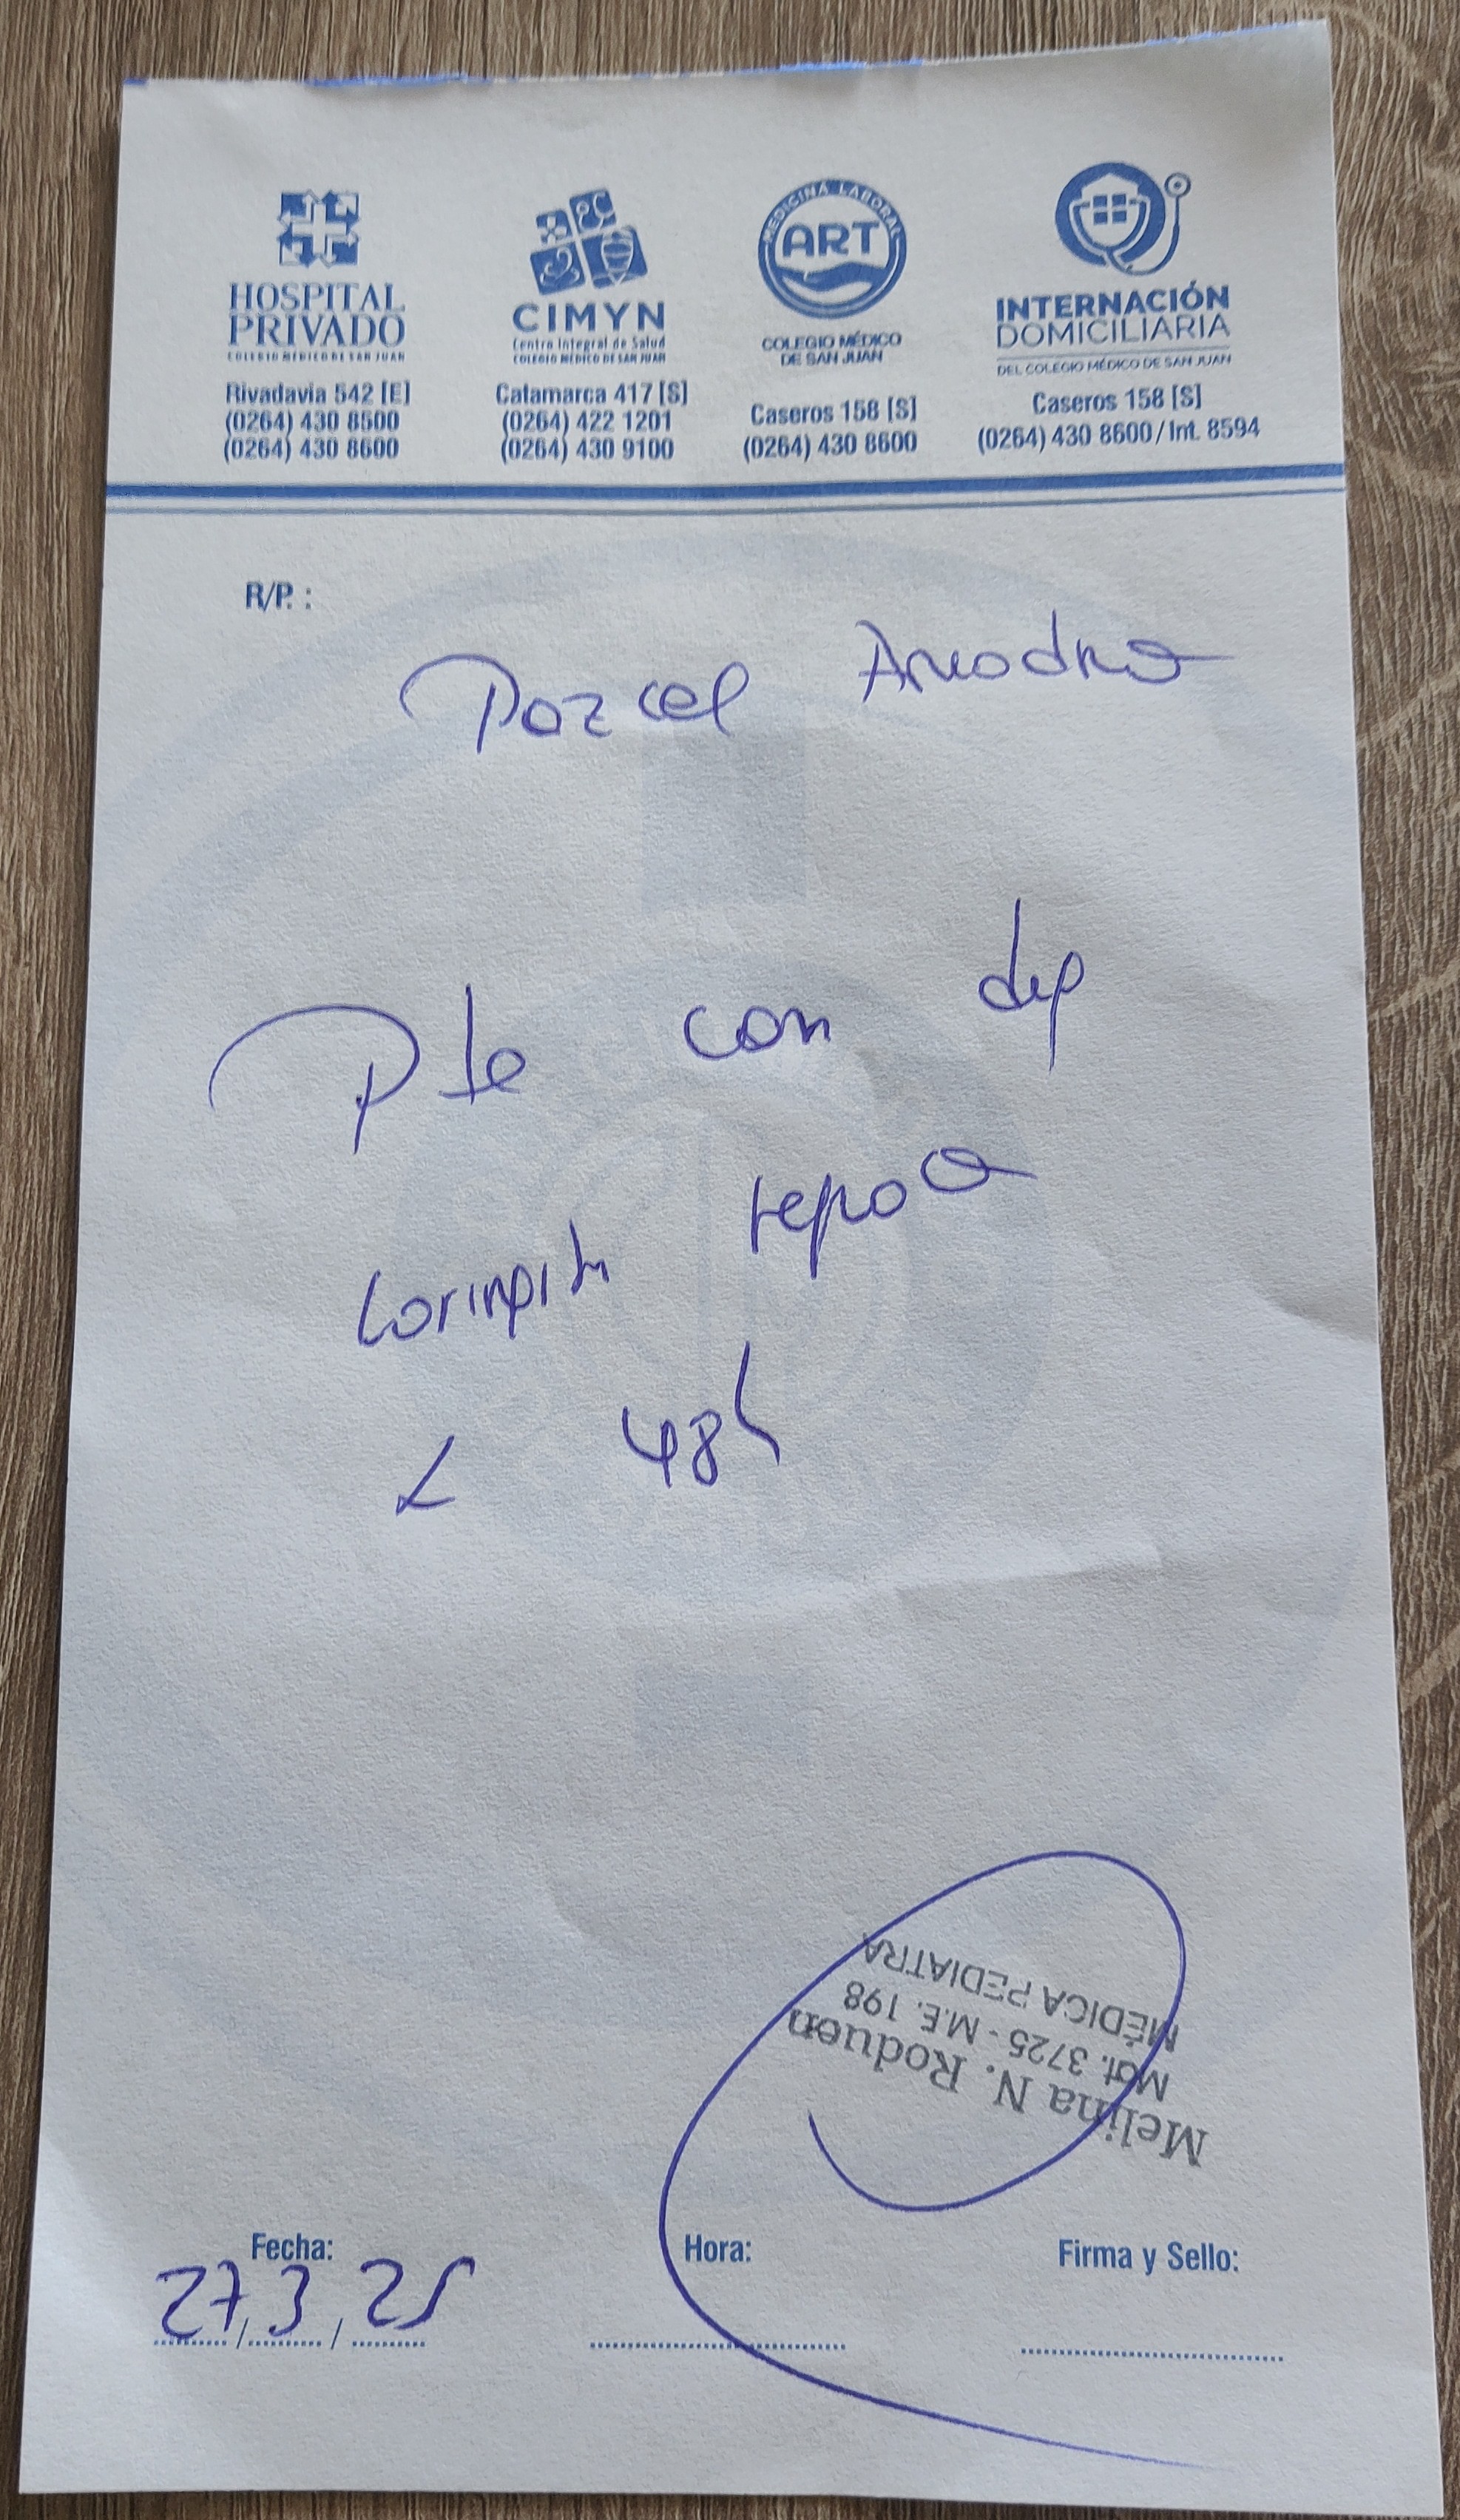 HOSPITAL
PRIVADO
COLEGIO MÉDICO DE SAN JUAN
Rivadavia 542 [E]
(0264) 430 8500
(0264) 430 8600
CIMYN
Centro Integral de Salud
COLEGIO MÉDICO DE SAN JUAN
Catamarca 417 [S]
(0264) 422 1201
(0264) 430 9100
MEDICINA LABORAL
ART
COLEGIO MÉDICO
DE SAN JUAN
Caseros 158 [S]
(0264) 430 8600
INTERNACIÓN
DOMICILIARIA
DEL COLEGIO MÉDICO DE SAN JUAN
Caseros 158 [S]
(0264) 430 8600 / Int. 8594
R/P. :
Pte con
48h
Melina N. Roduen
Mat. 3725 - M.E. 198
MÉDICA PEDIATRA
Fecha: Hora: Firma y Sello:
27/3/25